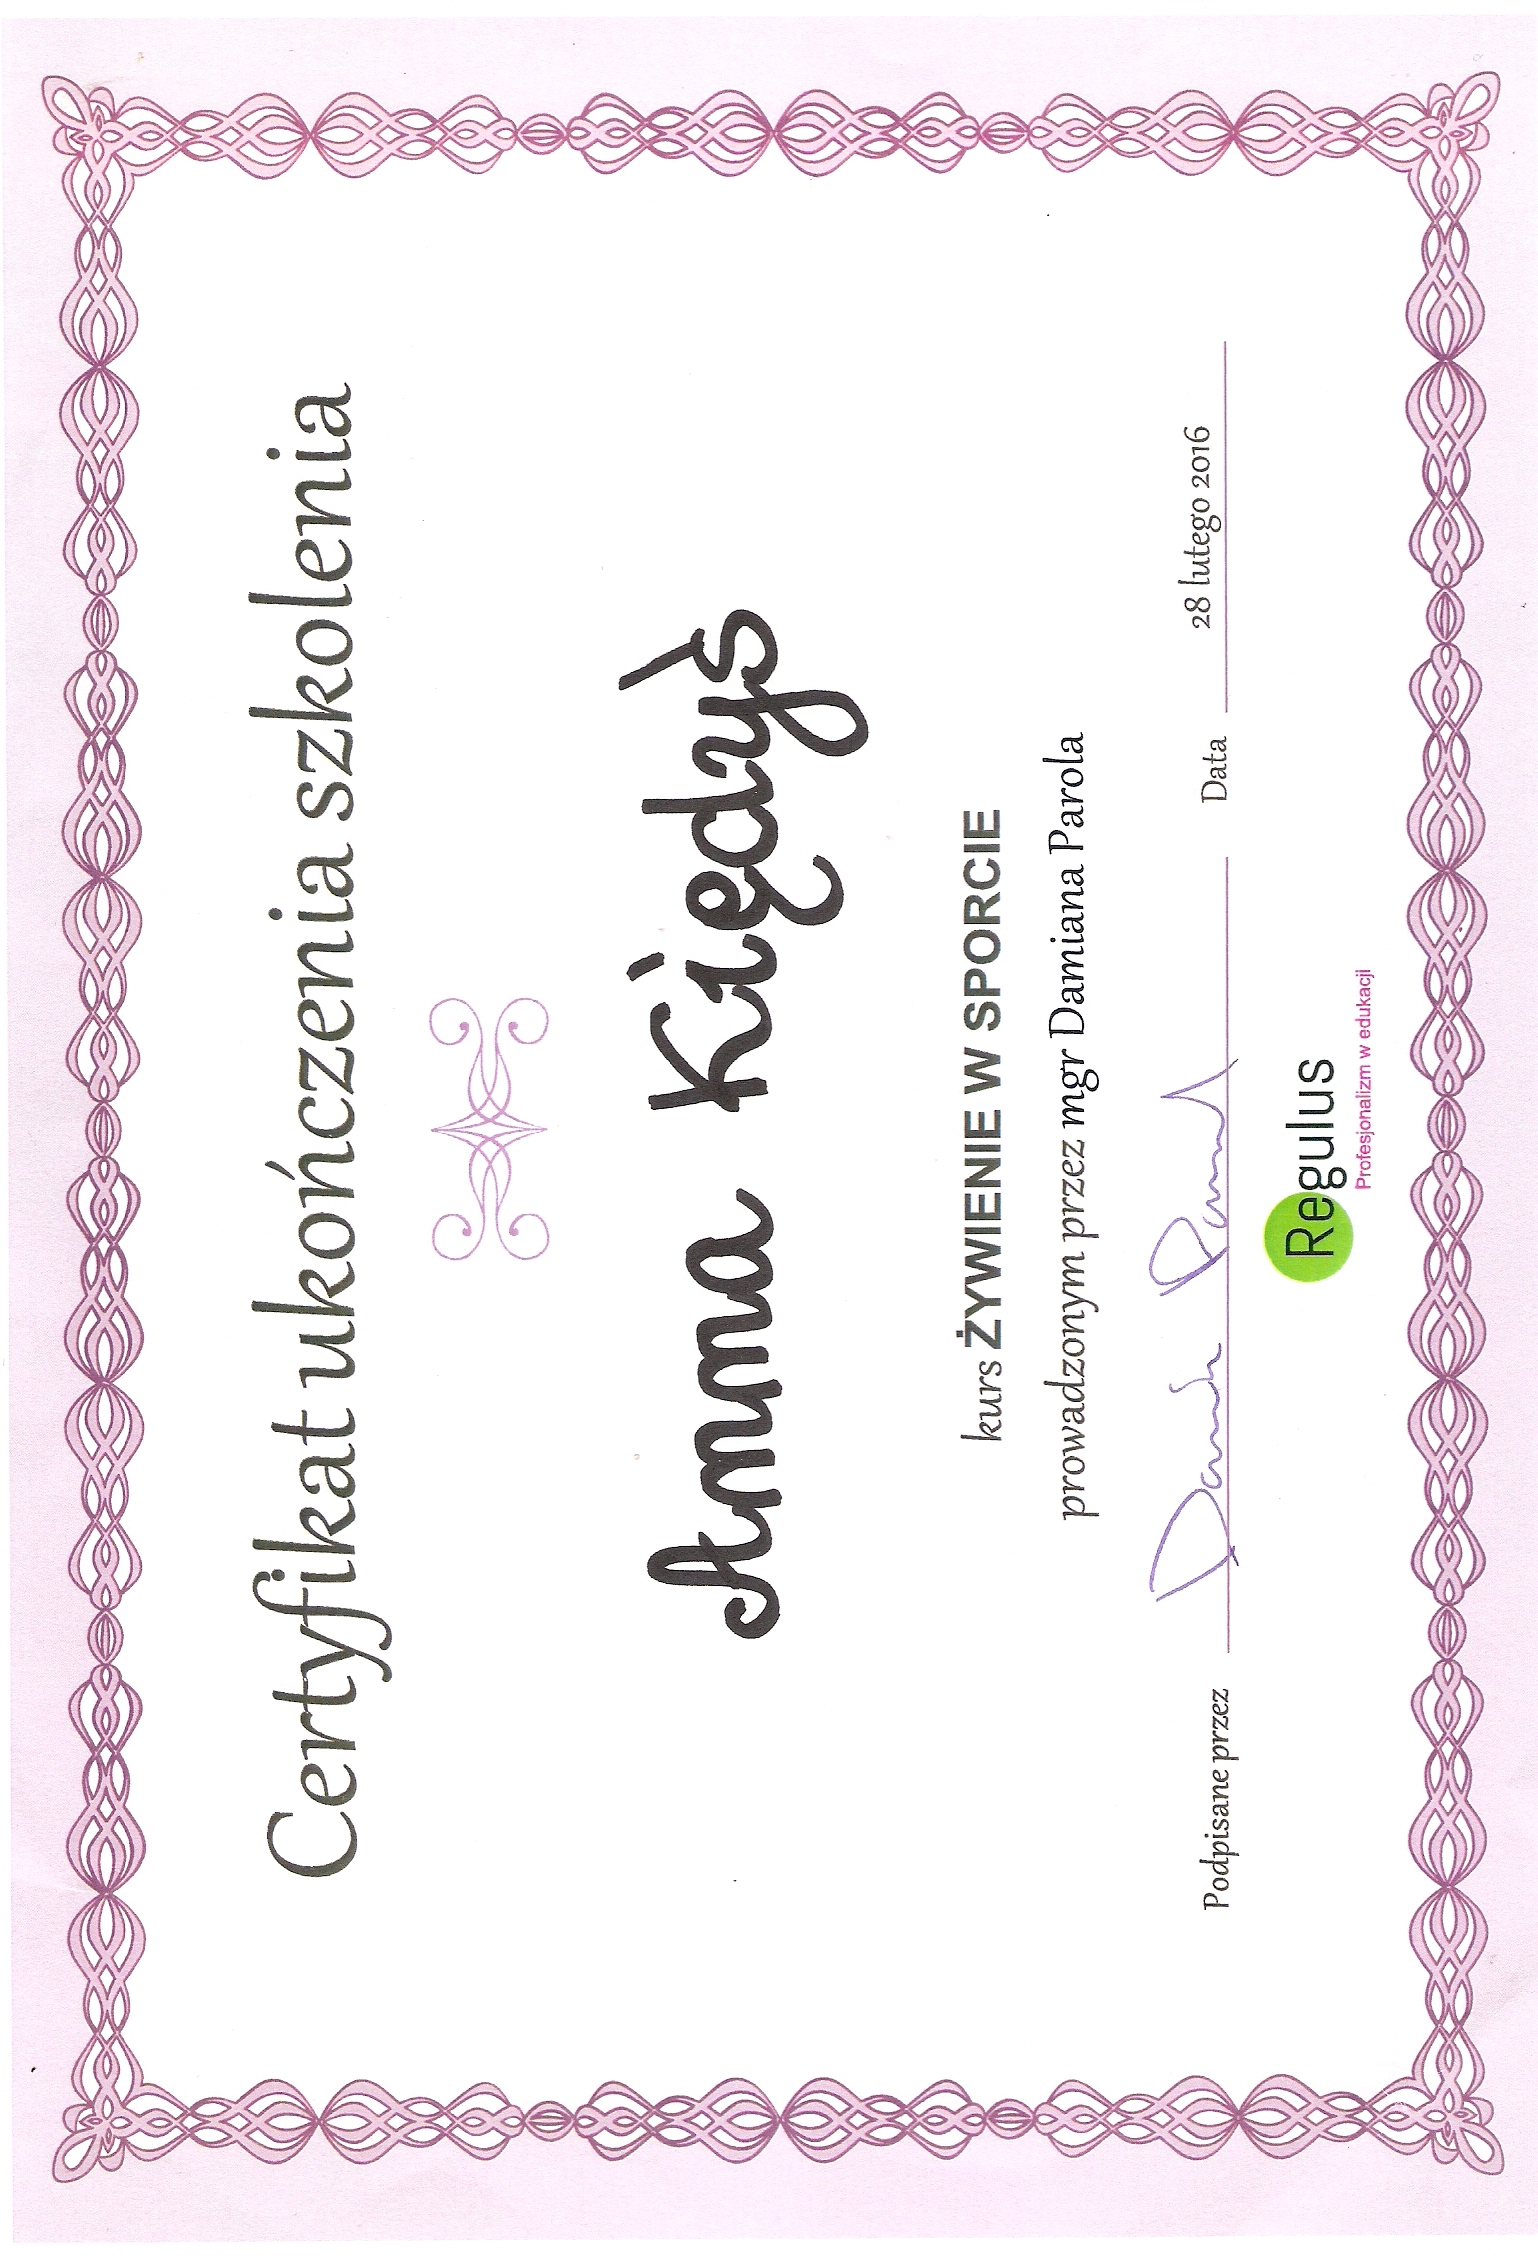 Certyfikat ukończenia szkolenia
Anna Kiędyś
kurs ŻYWIENIE W SPORCIE
prowadzonym przez mgr Damiana Parola
Podpisane przez Damian Parol Data 28 lutego 2016
Regulus
Profesjonalizm w edukacji